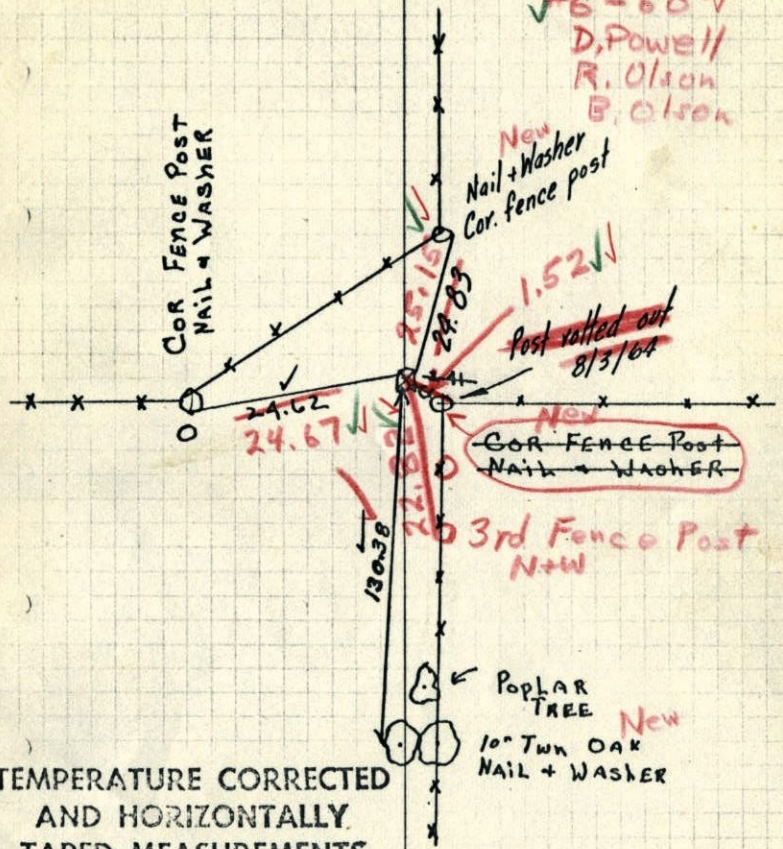 6-60
D. Powell
R. Olson
B. Olson
COR FENCE POST
NAIL & WASHER
New
Nail + Washer
Cor. fence post
25.15
24.83
1.52
Post rotted out
8/3/64
24.62
24.67
New
COR FENCE POST
NAIL & WASHER
22.82
130.38
3rd Fence Post
N+W
POPLAR
TREE
New
10" TWN OAK
NAIL + WASHER
TEMPERATURE CORRECTED
AND HORIZONTALLY
TAPED MEASUREMENTS